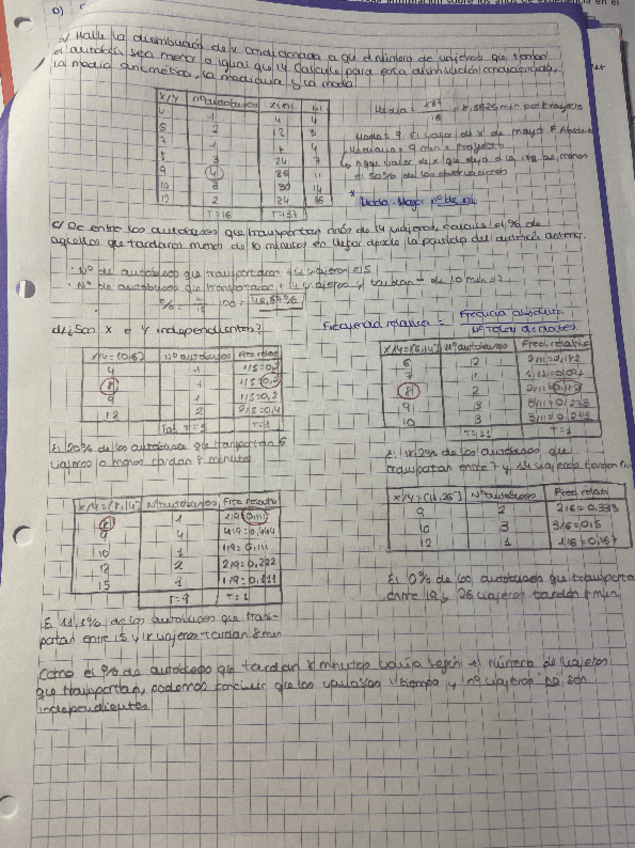 b) Halle la distribución de x condicionada a que el número de viajeros que toman
el autobús sea menor o igual que 14. Calcule para esta distribución condicionada,
la media aritmética, la mediana y la moda.
X/Y nº autobuses xi·ni Ni
4 1 4 4
6 2 12 3
7 1 7 4
8 3 24 7
9 4 36 11
10 3 30 14
12 2 24 16
T=16 T=137
Media = 137/16 = 8,5625 min por trayecto
Moda = 9 El valor de x de mayor f. Absoluta
Mediana = 9 min x trayecto
aquel valor de x que deja a la izq al menos
el 50% de las observaciones
* Moda. Mayor nº de ni
c) De entre los autobuses que transportan más de 14 viajeros, calcule el % de
aquellos que tardaron menos de 10 minutos en llegar desde la parada del autobús anterior.
· Nº de autobuses que transportaron + 14 viajeros = 15
· Nº de autobuses que transportaron + 14 viajeros y tardan - de 10 min = 7
% = 7/15 · 100 = 46,67%
d) ¿Son x e y independientes?
Frecuencia relativa = Frecuencia absoluta / Nº Total de datos
X/Y=(0,6] Nº autobuses Frec relat
4 1 1/5=0,2
8 1 1/5=0,2
9 1 1/5=0,2
12 2 2/5=0,4
T=5 T=1
El 20% de los autobuses que transportan 6
viajeros o menos tardan 8 minutos
X/Y=(6,14] Nº autobuses Frec. relativa
6 2 2/11=0,182
7 1 1/11=0,091
8 2 2/11=0,182
9 3 3/11=0,273
10 3 3/11=0,273
T=11 T=1
El 18,2% de los autobuses que
transportan entre 7 y 14 viajeros tardan 8 min
Nº autobuses Frec relativ
8 1 1/9=0,111
9 4 4/9=0,444
10 1 1/9=0,111
12 2 2/9=0,222
15 1 1/9=0,111
T=9 T=1
El 11,1% de los autobuses que trans-
portan entre 15 y 18 viajeros tardan 8 min
Nº autobuses Frec. relativ
9 2 2/6=0,333
10 3 3/6=0,5
12 1 1/6=0,167
El 0% de los autobuses que transportan
entre 19 y 26 viajeros tardan 8 min
Como el % de autobuses que tardan 8 minutos varía según el número de viajeros
que transportan, podemos concluir que las variables "tiempo y nº viajeros" no son
independientes